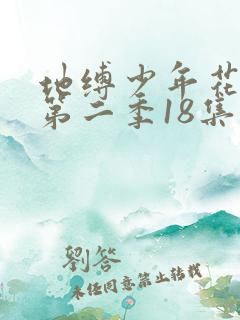 地缚少年花
第二季18集
劉答
未经同意禁止转载